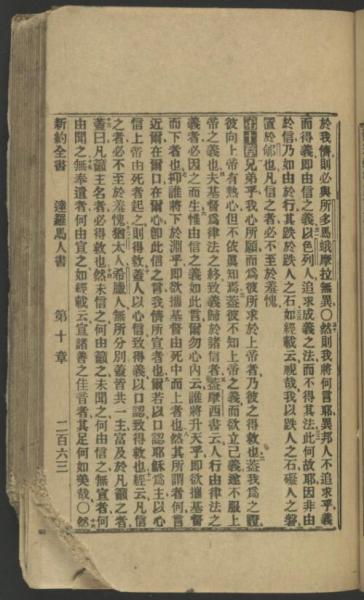 於我儕則必與所多馬蛾摩拉無異〇然則我將何言耶異邦人不追求乎義
而得義即由信之義以色列人追求成義之法而不得其法此何故耶因非由
於信乃如由於行其跌於跌人之石如經載云視哉我以跌人之石礙人之磐
置於郇也凡信之者必不至於羞愧
第十章兄弟乎我心所願而爲彼所求於上帝者乃彼之得救也蓋我爲之證
彼向上帝有熱心但不依眞知焉蓋彼不知上帝之義而欲立己義遂不服上
帝之義也夫基督爲律法之終致義歸於諸信者蓋摩西書云人行由律法之
義者必因之而生惟由信之義如此言爾勿心內云誰將升天乎即欲攜基督
而下者也抑誰將下於淵乎即欲攜基督由死中而上者也然其所謂者何言
近爾在爾口在爾心即此信之言我儕所宣者也爾若以口認耶穌爲主以心
信上帝由死者起之則得救蓋人以心信致得義以口認致得救也經云凡信
之者必不至於羞愧猶太人希臘人無所分別蓋皆共一主富及於凡籲之者
蓋曰凡籲主名者必得救也然未信之何由籲之未聞之何由信之無宣者何
由聞之無奉遣者何由宣之如經載云宣諸善之佳音者其足何如美哉〇然
新約全書 達羅馬人書 第十章 二百六三